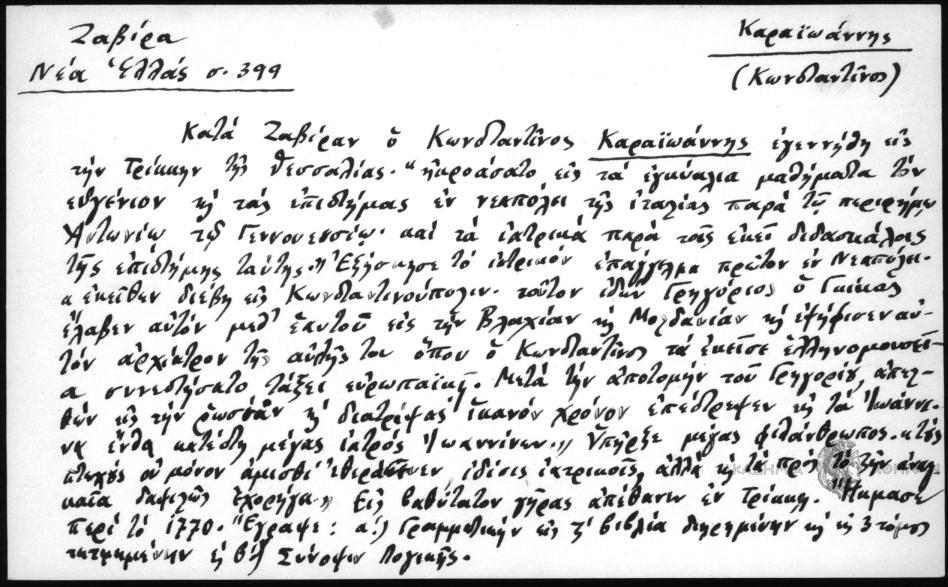 Ζαβίρα
Νέα Ἑλλάς σ. 399
Καραϊωάννης
(Κωνσταντῖνος)
Κατά Ζαβίραν ὁ Κωνσταντῖνος Καραϊωάννης ἐγεννήθη εἰς
τήν Τρίκκην τῆς Θεσσαλίας. "ἠκροάσατο εἰς τά ἐγκύκλια μαθήματα τόν
εὐγένιον κ τάς ἐπιστήμας ἐν νεαπόλει τῆς ἰταλίας παρά τῷ περιφήμῳ
Ἀντωνίῳ τῷ Γεννουενσίῳ· καί τά ἰατρικά παρά τοῖς ἐκεῖ διδασκάλοις
τῆς ἐπιστήμης ταύτης." Ἐξήσκησε τό ἰατρικόν ἐπάγγελμα πρῶτον ἐν Νεαπόλει.
κ ἐκεῖθεν διέβη εἰς Κωνσταντινούπολιν. τοῦτον ἰδών Γρηγόριος ὁ Γκίκας
ἔλαβεν αὐτόν μεθ' ἑαυτοῦ εἰς τήν Βλαχίαν κ Μολδαυΐαν κ ἐψήφισεν αὐ-
τόν ἀρχίατρον τῆς αὐλῆς του ὅπου ὁ Κωνσταντῖνος τά ἐκεῖσε ἑλληνομουσεῖ-
α συνεστήσατο τάξει εὐρωπαϊκῇ. Μετά τήν ἀποτομήν τοῦ Γρηγορίου, ἀπελ-
θών εἰς τήν ῥωσσίαν κ διατρίψας ἱκανόν χρόνον ἐπέστρεψεν εἰς τά Ἰωάννι-
να ἔνθα κατέστη μέγας ἰατρός Ἰωαννίνων." Ὑπῆρξε μέγας φιλάνθρωπος. κ τούς
πτωχούς οὐ μόνον ἀμισθί ἐθεράπευεν, ἰατρικοῖς, ἀλλά κ τά πρός τό ζῆν ἀναγ-
καῖα δαψιλῶς ἐχορήγει." Εἰς βαθύτατον γῆρας ἀπέθανεν ἐν Τρίκκῃ. Ἤκμασε
περί τό 1770. Ἔγραψε: α.) Γραμματικήν εἰς ζ' βιβλία διῃρημένην κ εἰς 3 τόμους
τετμημένην κ β.) Σύνοψιν Λογικῆς.